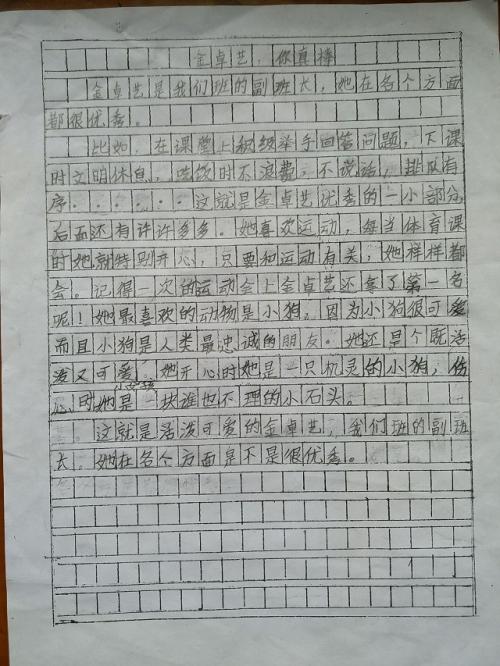 金卓艺，你真棒
金卓艺是我们班的副班长，她在各个方面
都很优秀。
比如，在课堂上积极举手回答问题，下课
时文明休息，吃饭时不浪费，不说话，排队有
序······这就是金卓艺优秀的一小部分，
后面还有许许多多。她喜欢运动，每当体育课
时她就特别开心，只要和运动有关，她样样都
会。记得一次的运动会上金卓艺还拿了第一名
呢！她最喜欢的动物是小狗，因为小狗很可爱
而且小狗是人类最忠诚的朋友。她还是个既活
泼又可爱，她开心时她是一只机灵的小狗，伤
心时她是一块谁也不理的小石头。
这就是活泼可爱的金卓艺，我们班的副班
长，她在各个方面是不是很优秀。